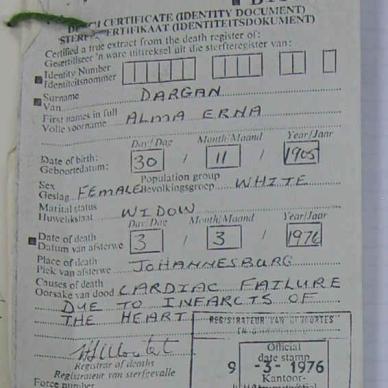 DEATH CERTIFICATE (IDENTITY DOCUMENT)
STERFSERTIFIKAAT (IDENTITEITSDOKUMENT)
Certified a true extract from the death register of:
Gesertifiseer 'n ware uittreksel uit die sterfteregister van:
Identity Number
Identiteitsnommer
Surname
Van DARGAN
First names in full
Volle voorname ALMA ERNA
Day/Dag Month/Maand Year/Jaar
Date of birth:
Geboortedatum: 30 / 11 / 1905
Sex Population group
Geslag FEMALE Bevolkingsgroep WHITE
Marital status
Huwelikstaat WIDOW
Day/Dag Month/Maand Year/Jaar
Date of death
Datum van afsterwe 3 / 3 / 1976
Place of death
Plek van afsterwe JOHANNESBURG
Causes of death
Oorsake van dood CARDIAC FAILURE
DUE TO INFARCTS OF
THE HEART
REGISTRATEUR VAN GEBOORTES
Official
date stamp
9 -3- 1976
Kantoor-
Registrar of deaths
Registrateur van sterfgevalle
Force number